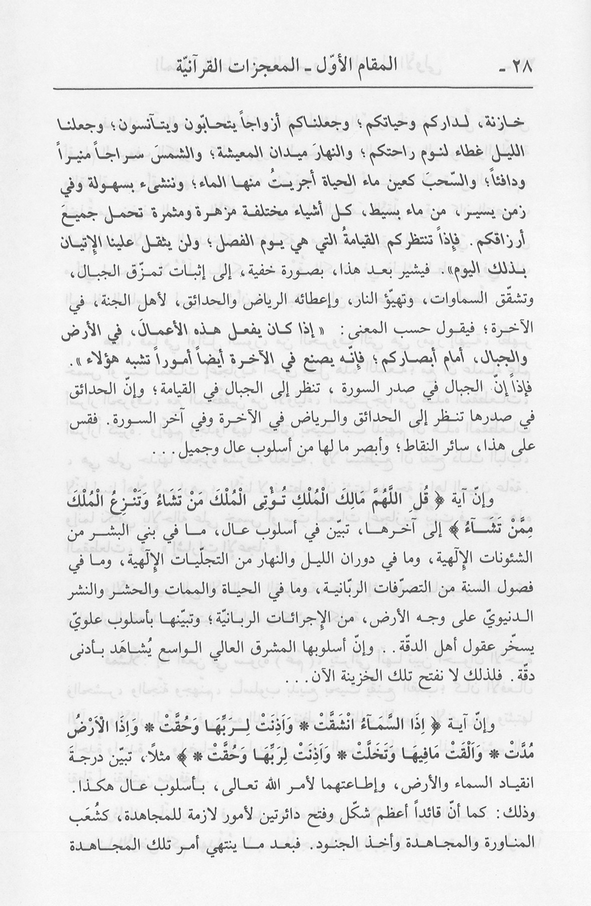 ٢٨ - المقام الأوّل ـ المعجزات القرآنيّة
خازنة، لداركم وحياتكم؛ وجعلناكم أزواجاً يتحابّون ويتآنسون؛ وجعلنا
الليل غطاء لنوم راحتكم؛ والنهارَ ميدان المعيشة؛ والشمسَ سراجاً منيراً
ودافئاً؛ والسّحبَ كعين ماء الحياة أجريتُ منها الماء؛ وننشىء بسهولة وفي
زمن يسير، من ماء بسيط، كل أشياء مختلفة مزهرة ومثمرة تحمل جميعَ
أرزاقكم. فإذاً تنتظركم القيامةُ التي هي يوم الفصل؛ ولن يثقل علينا الإتيان
بذلك اليوم». فيشير بعد هذا، بصورة خفية، إلى إثبات تمزّق الجبال،
وتشقّق السماوات، وتهيّؤ النار، وإعطائه الرياض والحدائق، لأهل الجنة، في
الآخرة؛ فيقول حسب المعنى: «إذا كان يفعل هذه الأعمالَ، في الأرض
والجبال، أمام أبصاركم؛ فإنّه يصنع في الآخرة أيضاً أموراً تشبه هؤلاء».
فإذاً إنّ الجبال في صدر السورة ، تنظر إلى الجبال في القيامة؛ وإنّ الحدائق
في صدرها تنظر إلى الحدائق والرياض في الآخرة وفي آخر السورة. فقس
على هذا، سائر النقاط؛ وأبصر ما لها من أسلوب عال وجميل...
وإنّ آية ﴿ قُلِ اللَّهُمَّ مَالِكَ الْمُلْكِ تُؤْتِى الْمُلْكَ مَنْ تَشَاءُ وَتَنْزِعُ الْمُلْكَ
مِمَّنْ تَشَآءُ ﴾ إلى آخرها، تبّين في أسلوب عال، ما في بني البشر من
الشئونات الإلٓهية، وما في دوران الليل والنهار من التجلّيات الإلٓهية، وما في
فصول السنة من التصرّفات الربّانية، وما في الحياة والممات والحشر والنشر
الدنيويّ على وجه الأرض، من الإجرائات الربانيّة؛ وتبيّنها بأسلوب علويّ
يسخّر عقول أهل الدقّة.. وإنّ أسلوبها المشرق العالي الواسع يُشاهَد بأدنى
دقّة. فلذلك لا نفتح تلك الخزينة الآن...
وإنّ آية ﴿ إِذَا السَّمَآءُ انْشَقَّتْ * وَاَذِنَتْ لِرَبِّهَا وَحُقَّتْ * وَإِذَا الْاَرْضُ
مُدَّتْ * وَاَلْقَتْ مَافِيهَا وَتَخَلَّتْ * وَاَذِنَتْ لِرَبِّهَا وَحُقَّتْ * ﴾ مثلا، تبّين درجةَ
انقياد السماء والأرض، وإطاعتهما لأمر الله تعالى، بأسلوب عال هكذا.
وذلك: كما أنّ قائداً أعظم شكّل وفتح دائرتين لأمور لازمة للمجاهدة، كشُعَب
المناورة والمجاهدة وأخذ الجنود. فبعد ما ينتهي أمر تلك المجاهدة